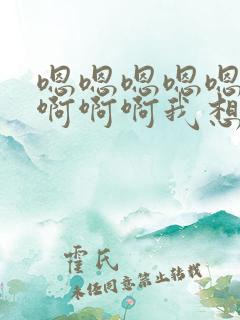 嗯嗯嗯嗯嗯
啊啊啊我想
霍氏
未经同意禁止转载